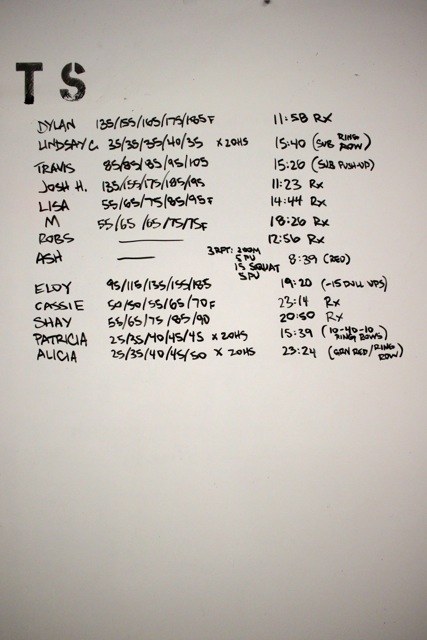 T S
DYLAN 135/155/165/175/185F 11:58 Rx
LINDSAY C. 35/35/35/40/35 x 20HS 15:40 (SUB RING ROW)
TRAVIS 85/85/85/95/105 15:26 (SUB PUSH-UP)
JOSH H. 135/155/175/185/195 11:23 Rx
LISA 55/65/75/85/95F 14:44 Rx
M 55/65/65/75/75F 18:26 Rx
ROBS — 12:56 Rx
ASH — 3RFT: 200M 5 PU 15 SQUAT 5PU 8:39 (RED)
ELOY 95/115/135/155/185 19:20 (-15 PULL UPS)
CASSIE 50/50/55/65/70F 23:14 Rx
SHAY 55/65/75/85/90 20:50 Rx
PATRICIA 25/35/40/45/45 x 20HS 15:39 (10-40-10 RING ROWS)
ALICIA 25/35/40/45/50 x 20HS 23:24 (GRN RED/RING ROW)